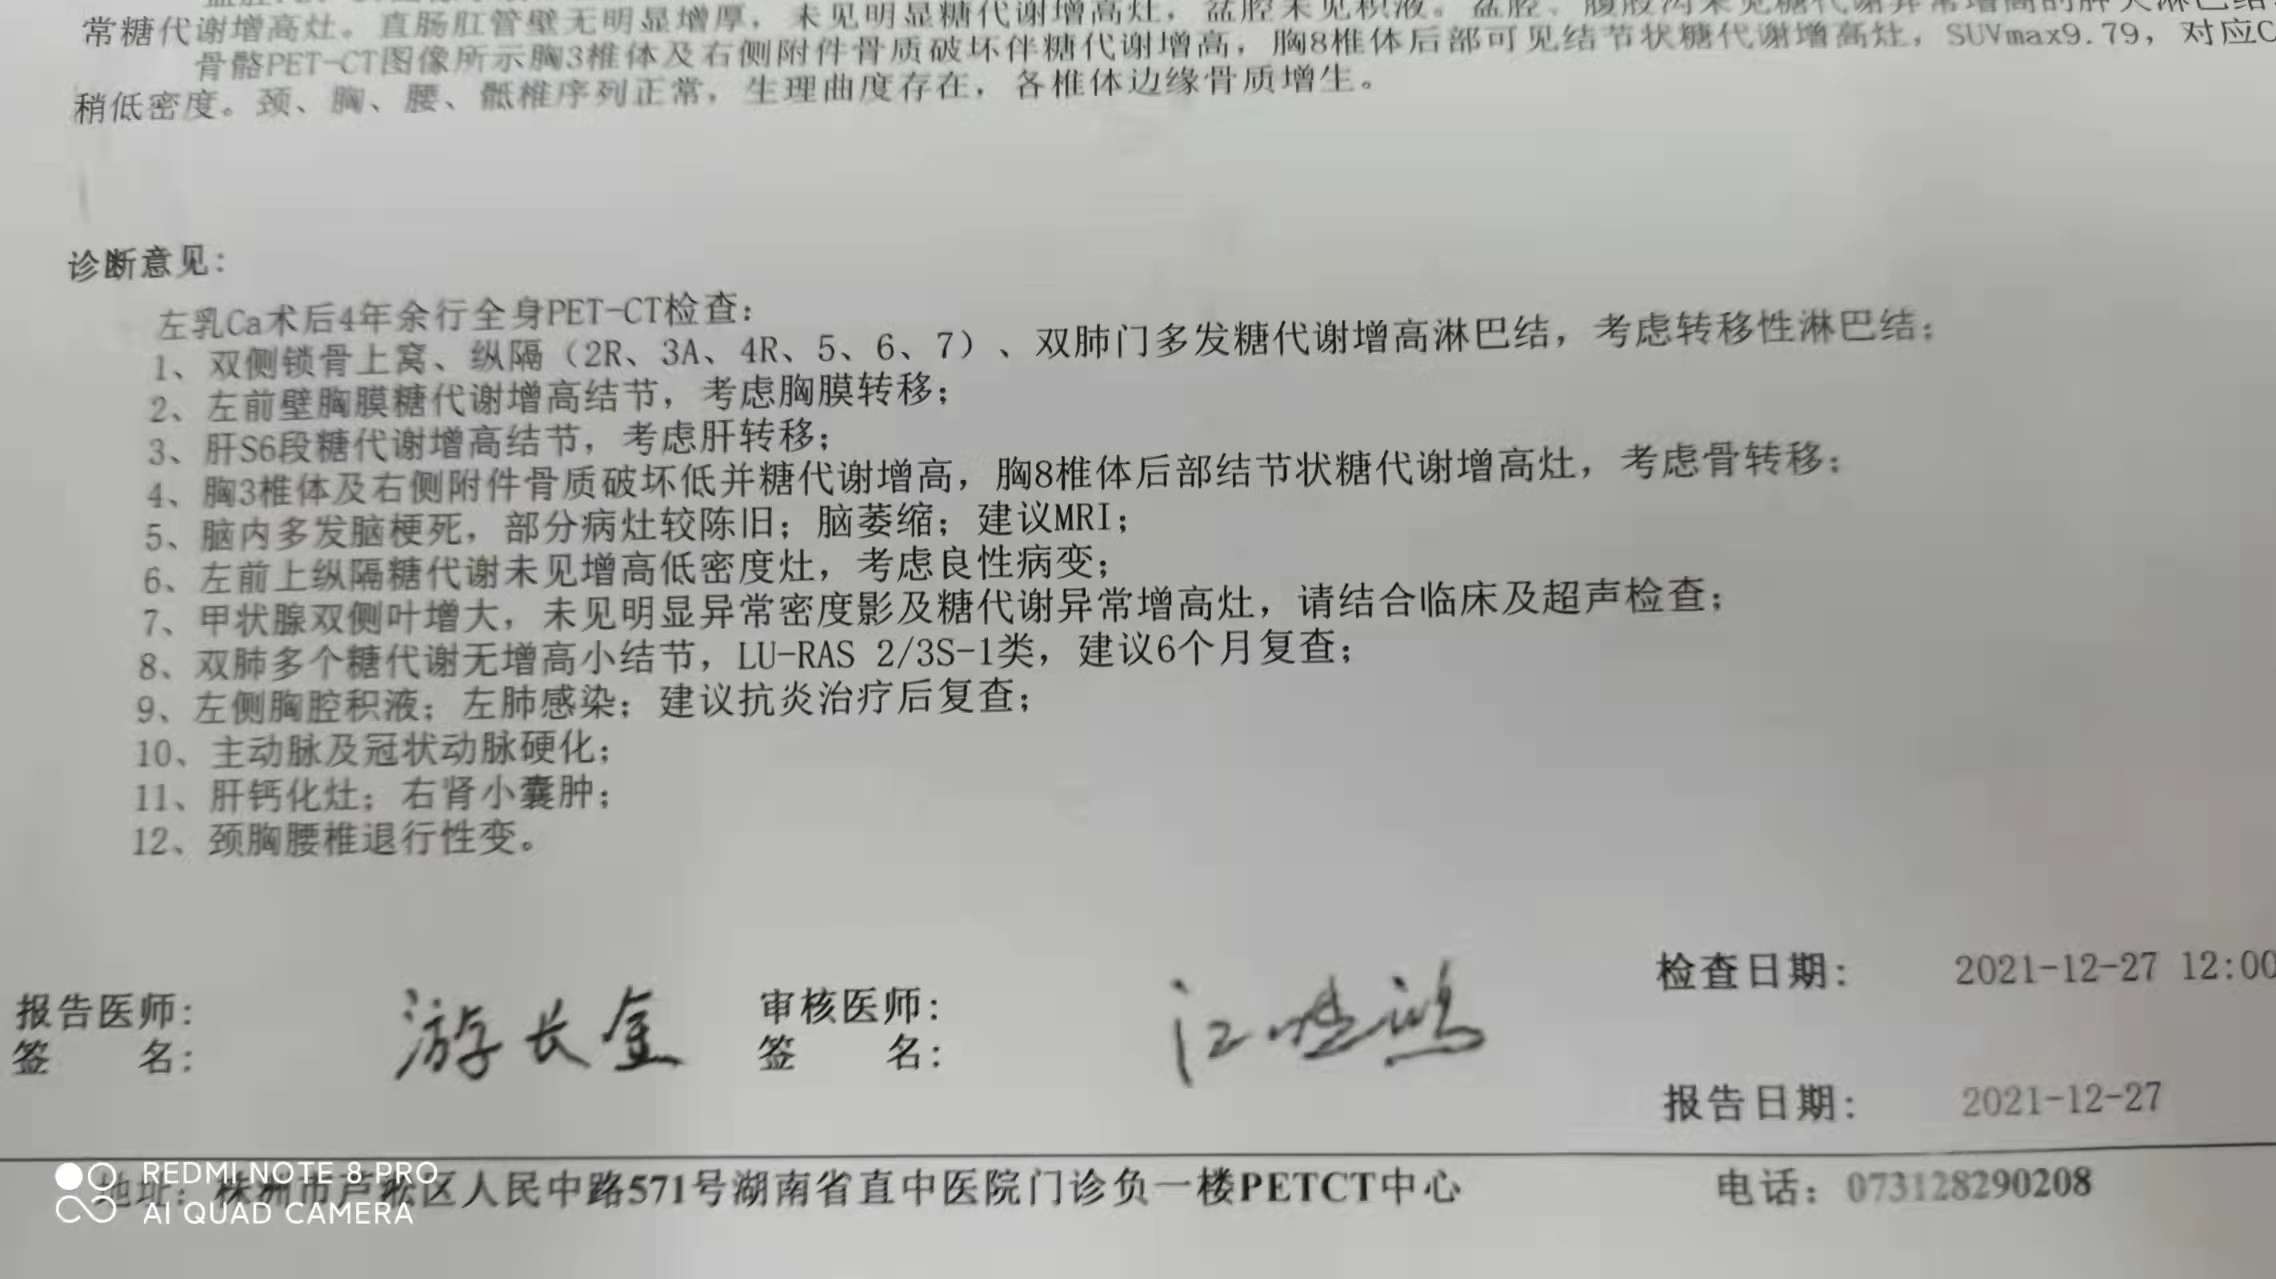 常糖代谢增高灶。直肠肛管壁无明显增厚，未见明显糖代谢增高灶，盆腔未见积液。盆腔、腹股沟未见糖代谢异常增高的肿大淋巴结
骨骼PET-CT图像所示胸3椎体及右侧附件骨质破坏伴糖代谢增高，胸8椎体后部可见结节状糖代谢增高灶，SUVmax9.79，对应C
稍低密度。颈、胸、腰、骶椎序列正常，生理曲度存在，各椎体边缘骨质增生。
诊断意见：
左乳Ca术后4年余行全身PET-CT检查：
1、双侧锁骨上窝、纵隔（2R、3A、4R、5、6、7）、双肺门多发糖代谢增高淋巴结，考虑转移性淋巴结；
2、左前壁胸膜糖代谢增高结节，考虑胸膜转移；
3、肝S6段糖代谢增高结节，考虑肝转移；
4、胸3椎体及右侧附件骨质破坏低并糖代谢增高，胸8椎体后部结节状糖代谢增高灶，考虑骨转移；
5、脑内多发脑梗死，部分病灶较陈旧；脑萎缩；建议MRI；
6、左前上纵隔糖代谢未见增高低密度灶，考虑良性病变；
7、甲状腺双侧叶增大，未见明显异常密度影及糖代谢异常增高灶，请结合临床及超声检查；
8、双肺多个糖代谢无增高小结节，LU-RAS 2/3S-1类，建议6个月复查；
9、左侧胸腔积液；左肺感染；建议抗炎治疗后复查；
10、主动脉及冠状动脉硬化；
11、肝钙化灶；右肾小囊肿；
12、颈胸腰椎退行性变。
检查日期： 2021-12-27 12:00
报告医师： 审核医师：
签 名： 游长金 签 名： 江
报告日期： 2021-12-27
地址：株洲市芦淞区人民中路571号湖南省直中医院门诊负一楼PETCT中心 电话：073128290208
REDMI NOTE 8 PRO
AI QUAD CAMERA